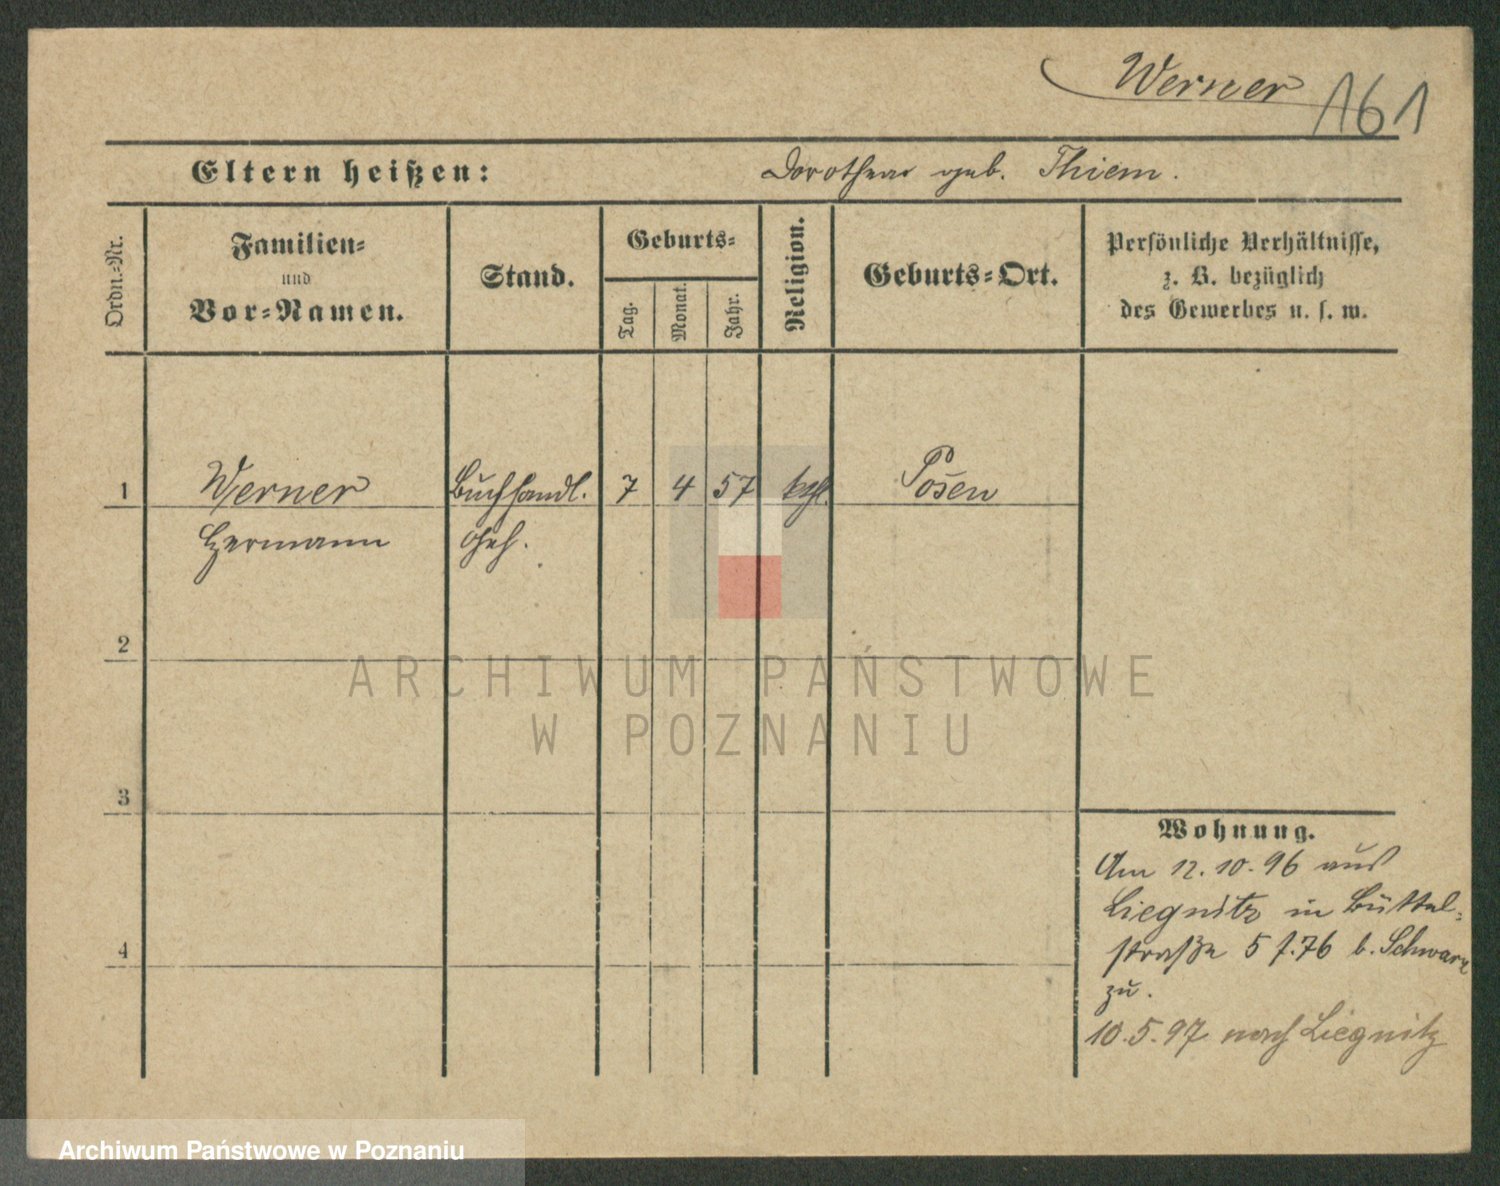 Werner 161
Eltern heißen: Dorothea geb. Thiem.
Ordn.-Nr.
Familien-
und
Vor-Namen.
Stand.
Geburts-
Tag.
Monat.
Jahr.
Religion.
Geburts-Ort.
Persönliche Verhältnisse,
z. B. bezüglich
des Gewerbes u. s. w.
1 Werner Buchhandl. 7 4 57 Posen
Hermann Geh.
2
3
4
Wohnung.
Am 12.10.96 aus
Liegnitz in Büttel-
straße 5 f. 76 b. Schwarz
zu.
10.5.97 nach Liegnitz
ARCHIWUM PAŃSTWOWE
W POZNANIU
Archiwum Państwowe w Poznaniu